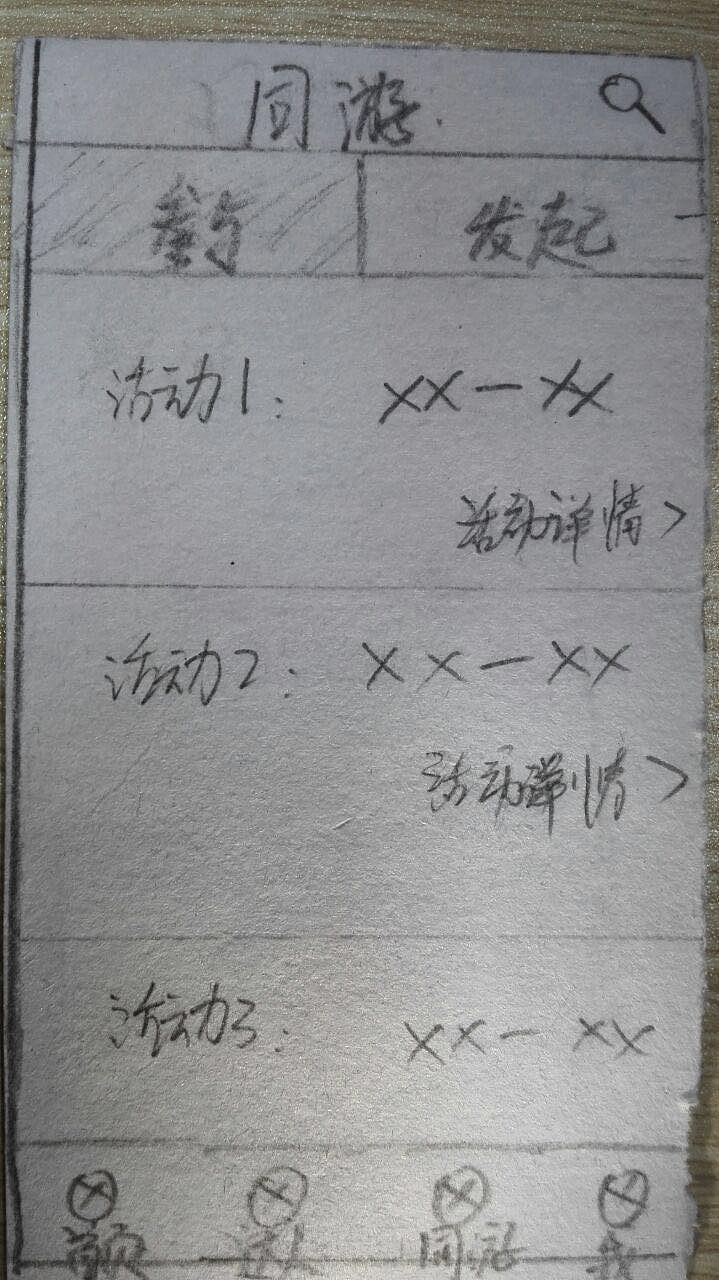 同游
参与 发起
活动1: XX-XX
活动详情>
活动2: XX-XX
活动详情>
活动3: XX-XX
首页 达人 同游 我